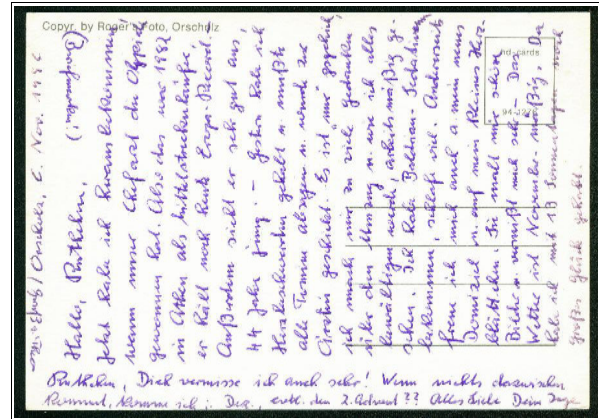 Copyr. by Roger's Foto, Orscholz
hd-cards
94-1275
Orscholz, 2. Nov. 1986
Hallo, Ruthchen,
jetzt habe ich herausbekommen,
wann unser Chefarzt die Olympiade
gewonnen hat. Also das war 1982
in Athen als Mittelstreckenläufer
er hält noch heute Europ. Record!
Außerdem sieht er sehr gut aus,
44 Jahre jung. – Gestern habe ich
Herzbeschwerden gehabt u. mußte
alle Termine absagen u. wurde zur
geschickt. Es ist "nur" psychisch,
ich mach mir zu viele Gedanken
über den Umzug u. wie ich alles
bewältigen werde, arbeitsmäßig
sehen. Ich habe Baldrian-
bekommen, schlafe viel. Andererseits
freue ich mich auch a. mein neues
Domizil u. auf mein kleines Herz-
blättchen. Sie malt mir schöne
Bilder u. vermißt mich sehr. – Das
Wetter ist November-mäßig. Da
habe ich mit 13 Sonnentagen noch
großes Glück gehabt.
Ruthchen, Dich vermisse ich auch sehr! Wenn nichts dazwischen
kommt, komme ich i. Dez., evtl. den 2. Advent?? Alles Liebe Deine